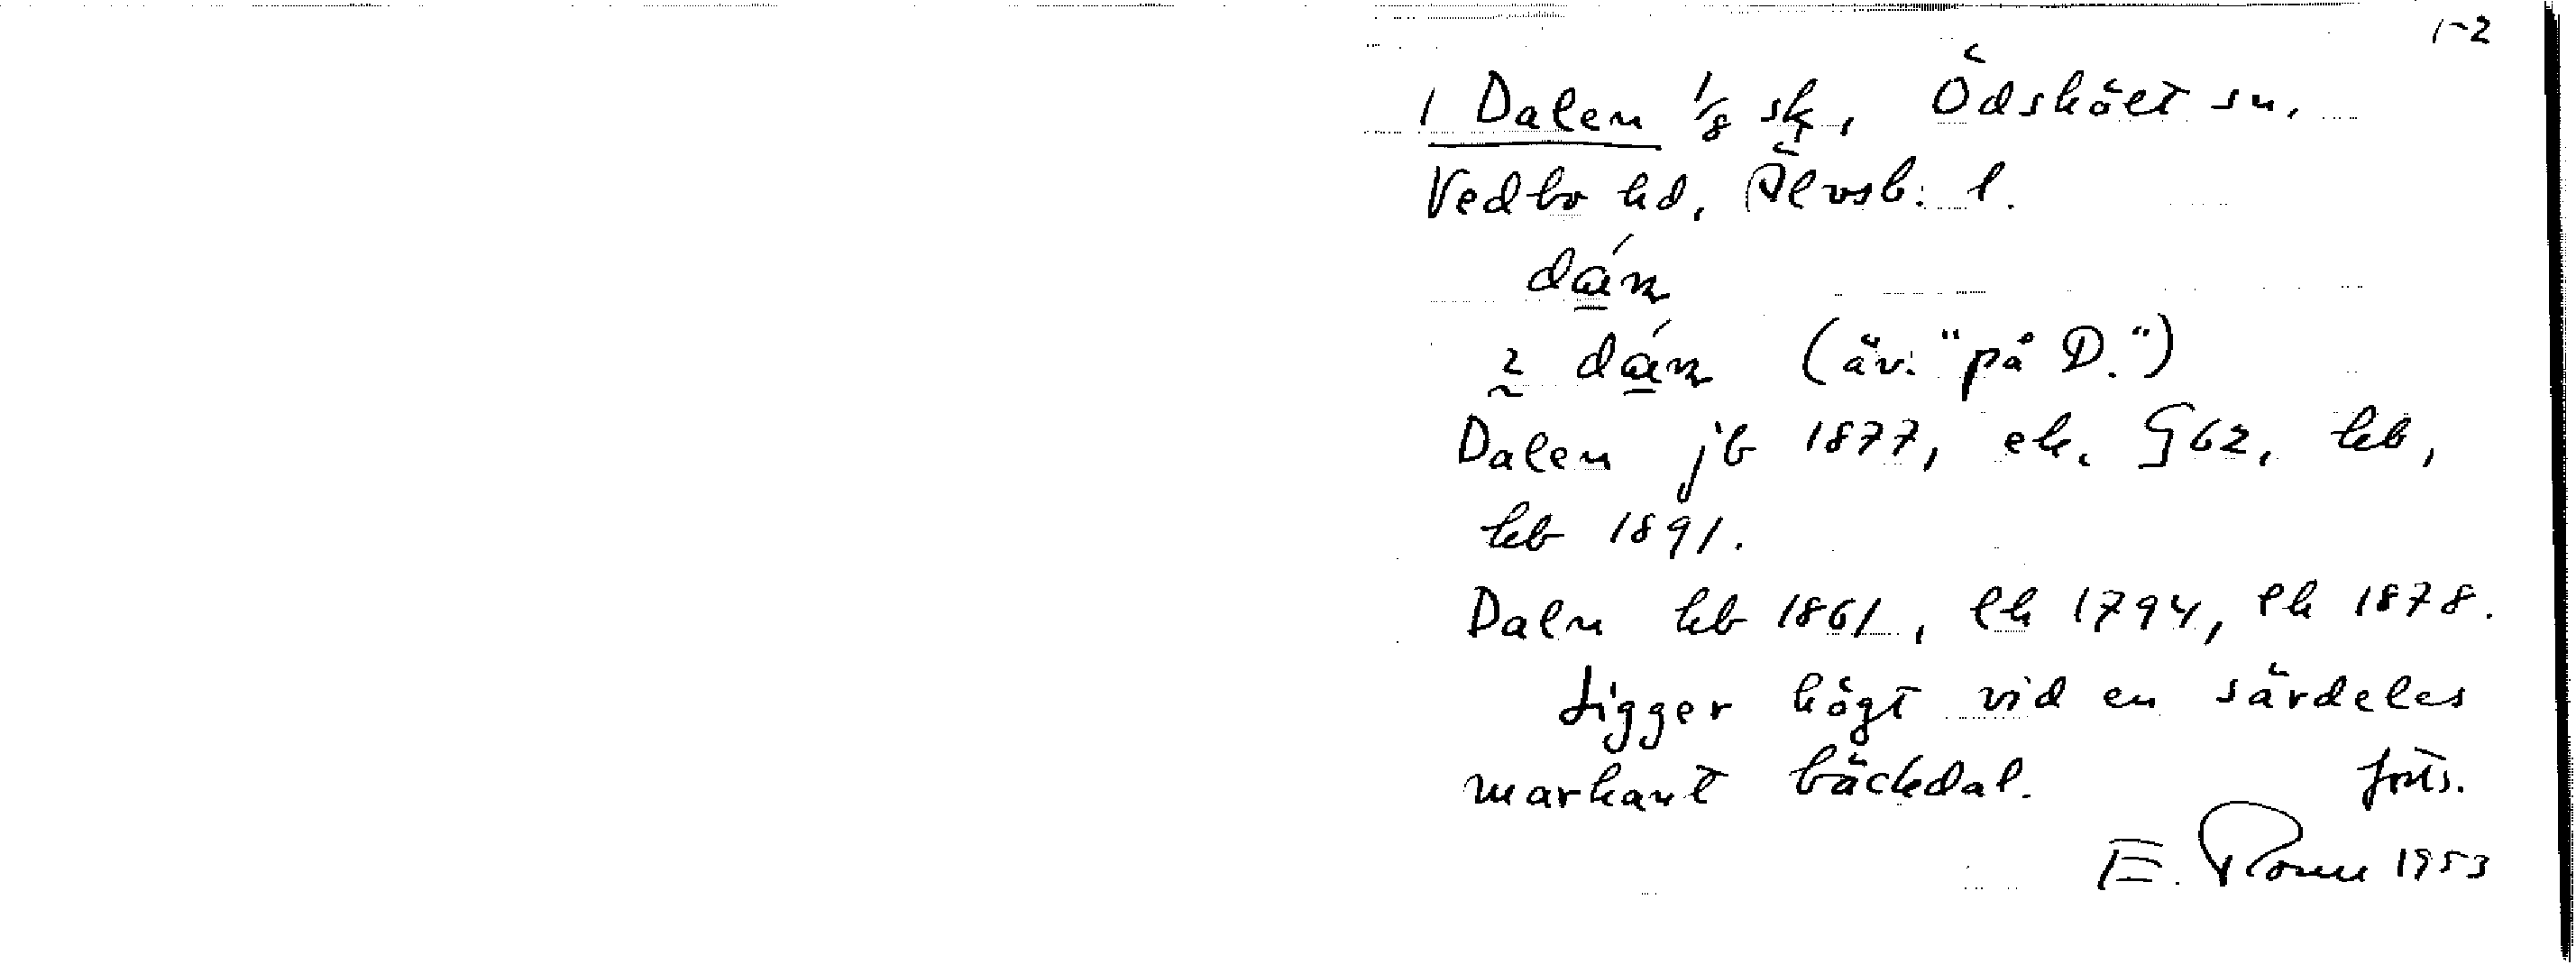 1-2
1 Dalen 1/8 sk, Ödskölt sn.
Vedbo hd, Älvsb. l.
dán
2 dán (äv. "på D.")
Dalen jb 1877, ek. G62, kb,
hb 1891.
Daln kb 1861, lh 1794, lh 1878.
Ligger högt vid en särdeles
markant bäckdal. forts.
E. 1953